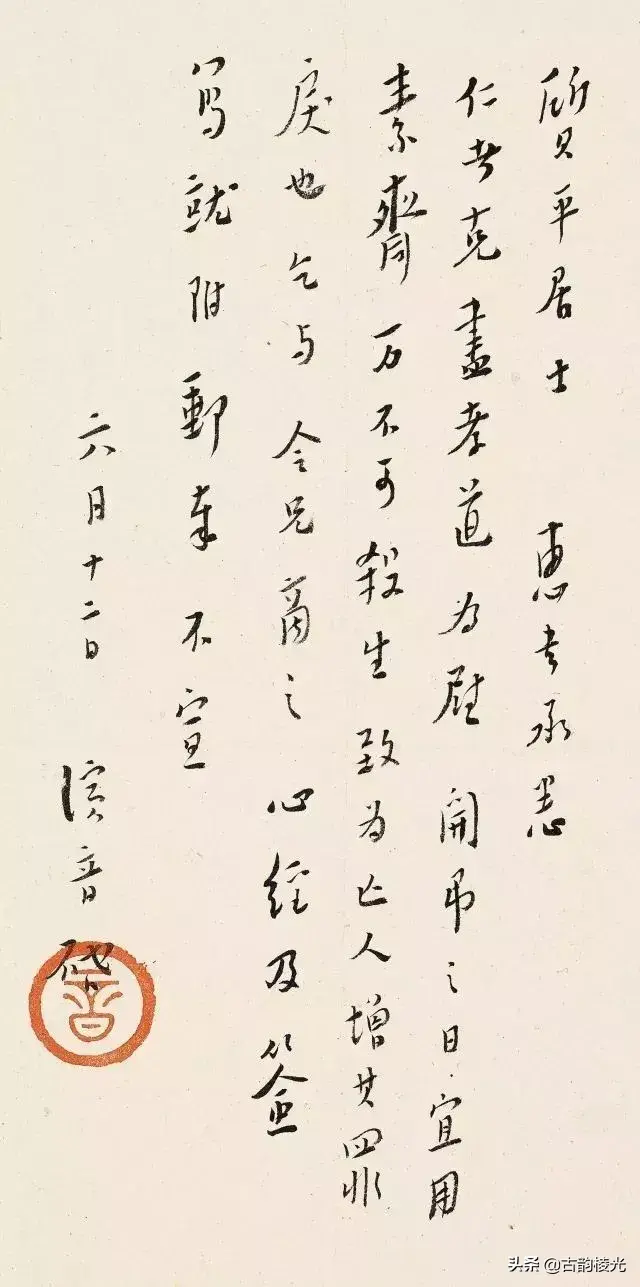 質平居士 惠書承悉
仁者克盡孝道為慰 開弔之日宜用
素齋万不可殺生致為亡人增其罪
戾也乞与 令兄商之 心經及簽
寫就附郵奉 不宣
六月十二日 演音 啓
头条 @古韵棱光